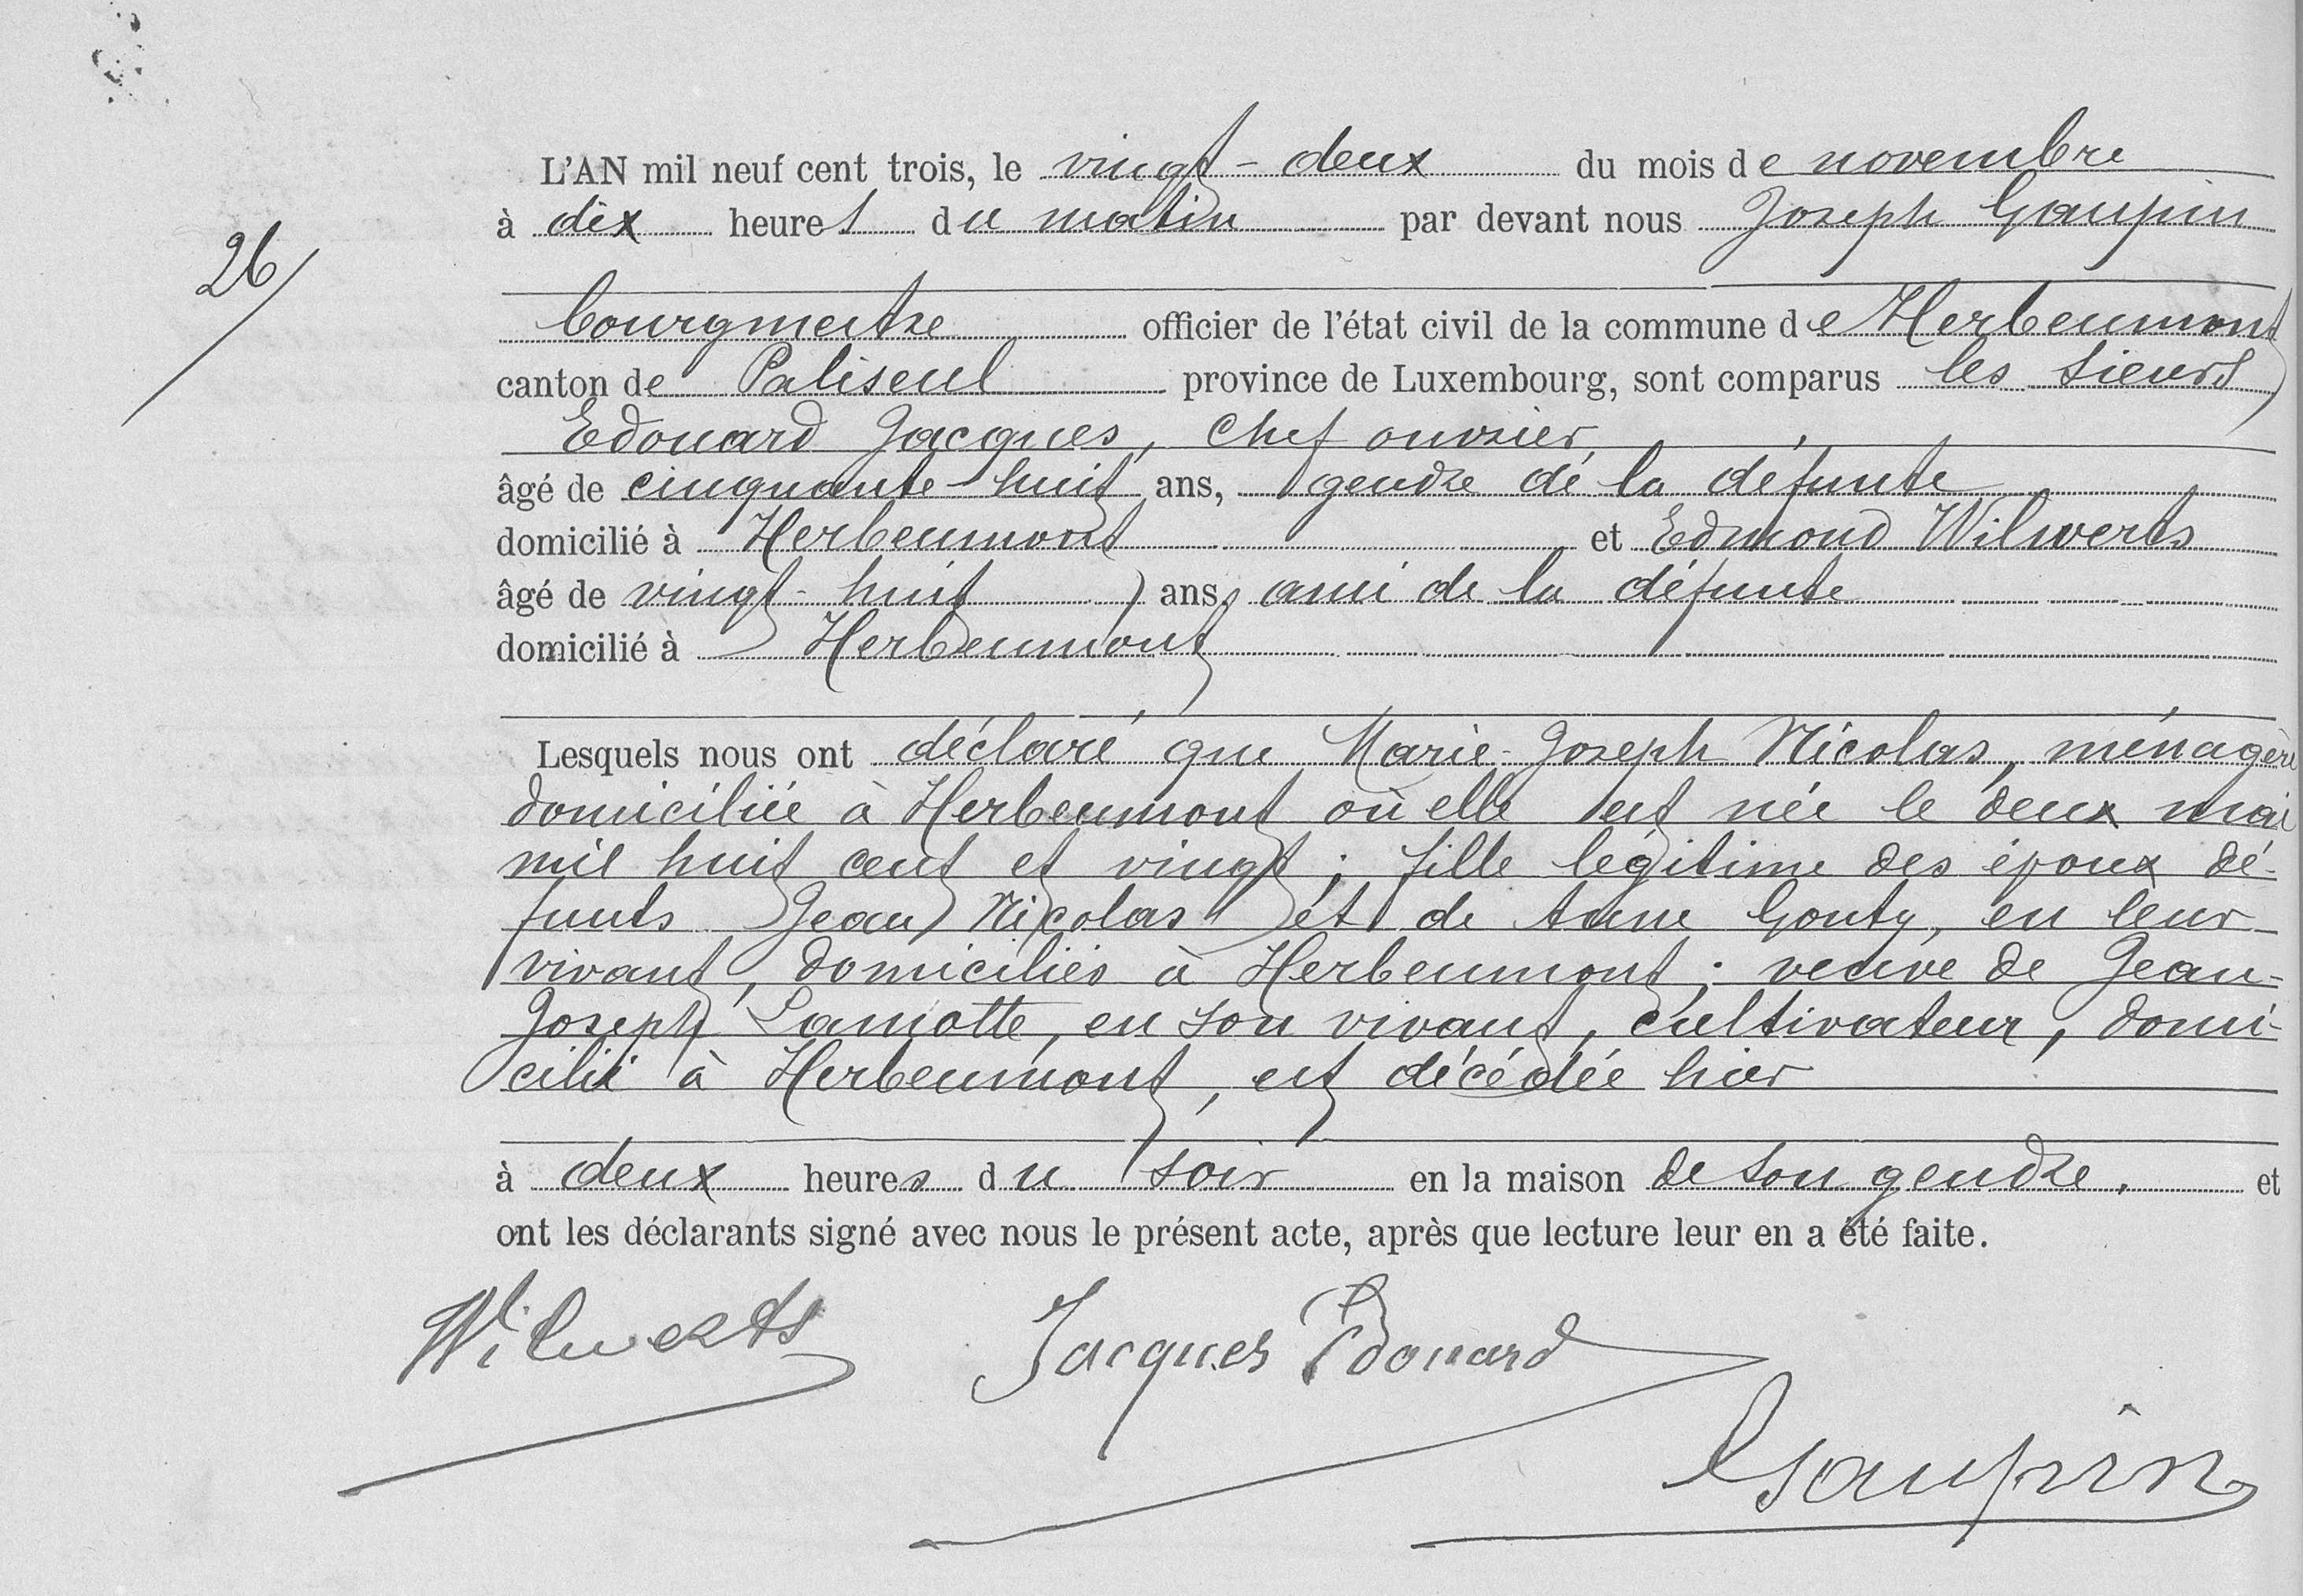 26/
L'AN mil neuf cent trois, le vingt-deux du mois de novembre
à dix heures du matin par devant nous Joseph Gaupin
bourgmestre officier de l'état civil de la commune de Herbeumont
canton de Paliseul province de Luxembourg, sont comparus les sieurs
Edouard Jacques, chef ouvrier,
âgé de cinquante-huit ans, gendre de la défunte
domicilié à Herbeumont et Edmond Wilwerts
âgé de vingt-huit ans, ami de la défunte
domicilié à Herbeumont
Lesquels nous ont déclaré que Marie-Joseph Nicolas, ménagère
domiciliée à Herbeumont où elle est née le deux mai
mil huit cent et vingt ; fille légitime des époux dé-
funts Jean Nicolas et de Anne Gouty, en leur
vivant, domiciliés à Herbeumont ; veuve de Jean-
Joseph Lamotte, en son vivant, cultivateur, domi-
cilié à Herbeumont, est décédée hier
à deux heures du soir en la maison de son gendre. et
ont les déclarants signé avec nous le présent acte, après que lecture leur en a été faite.
Wilwerts Jacques Edouard
Gaupin